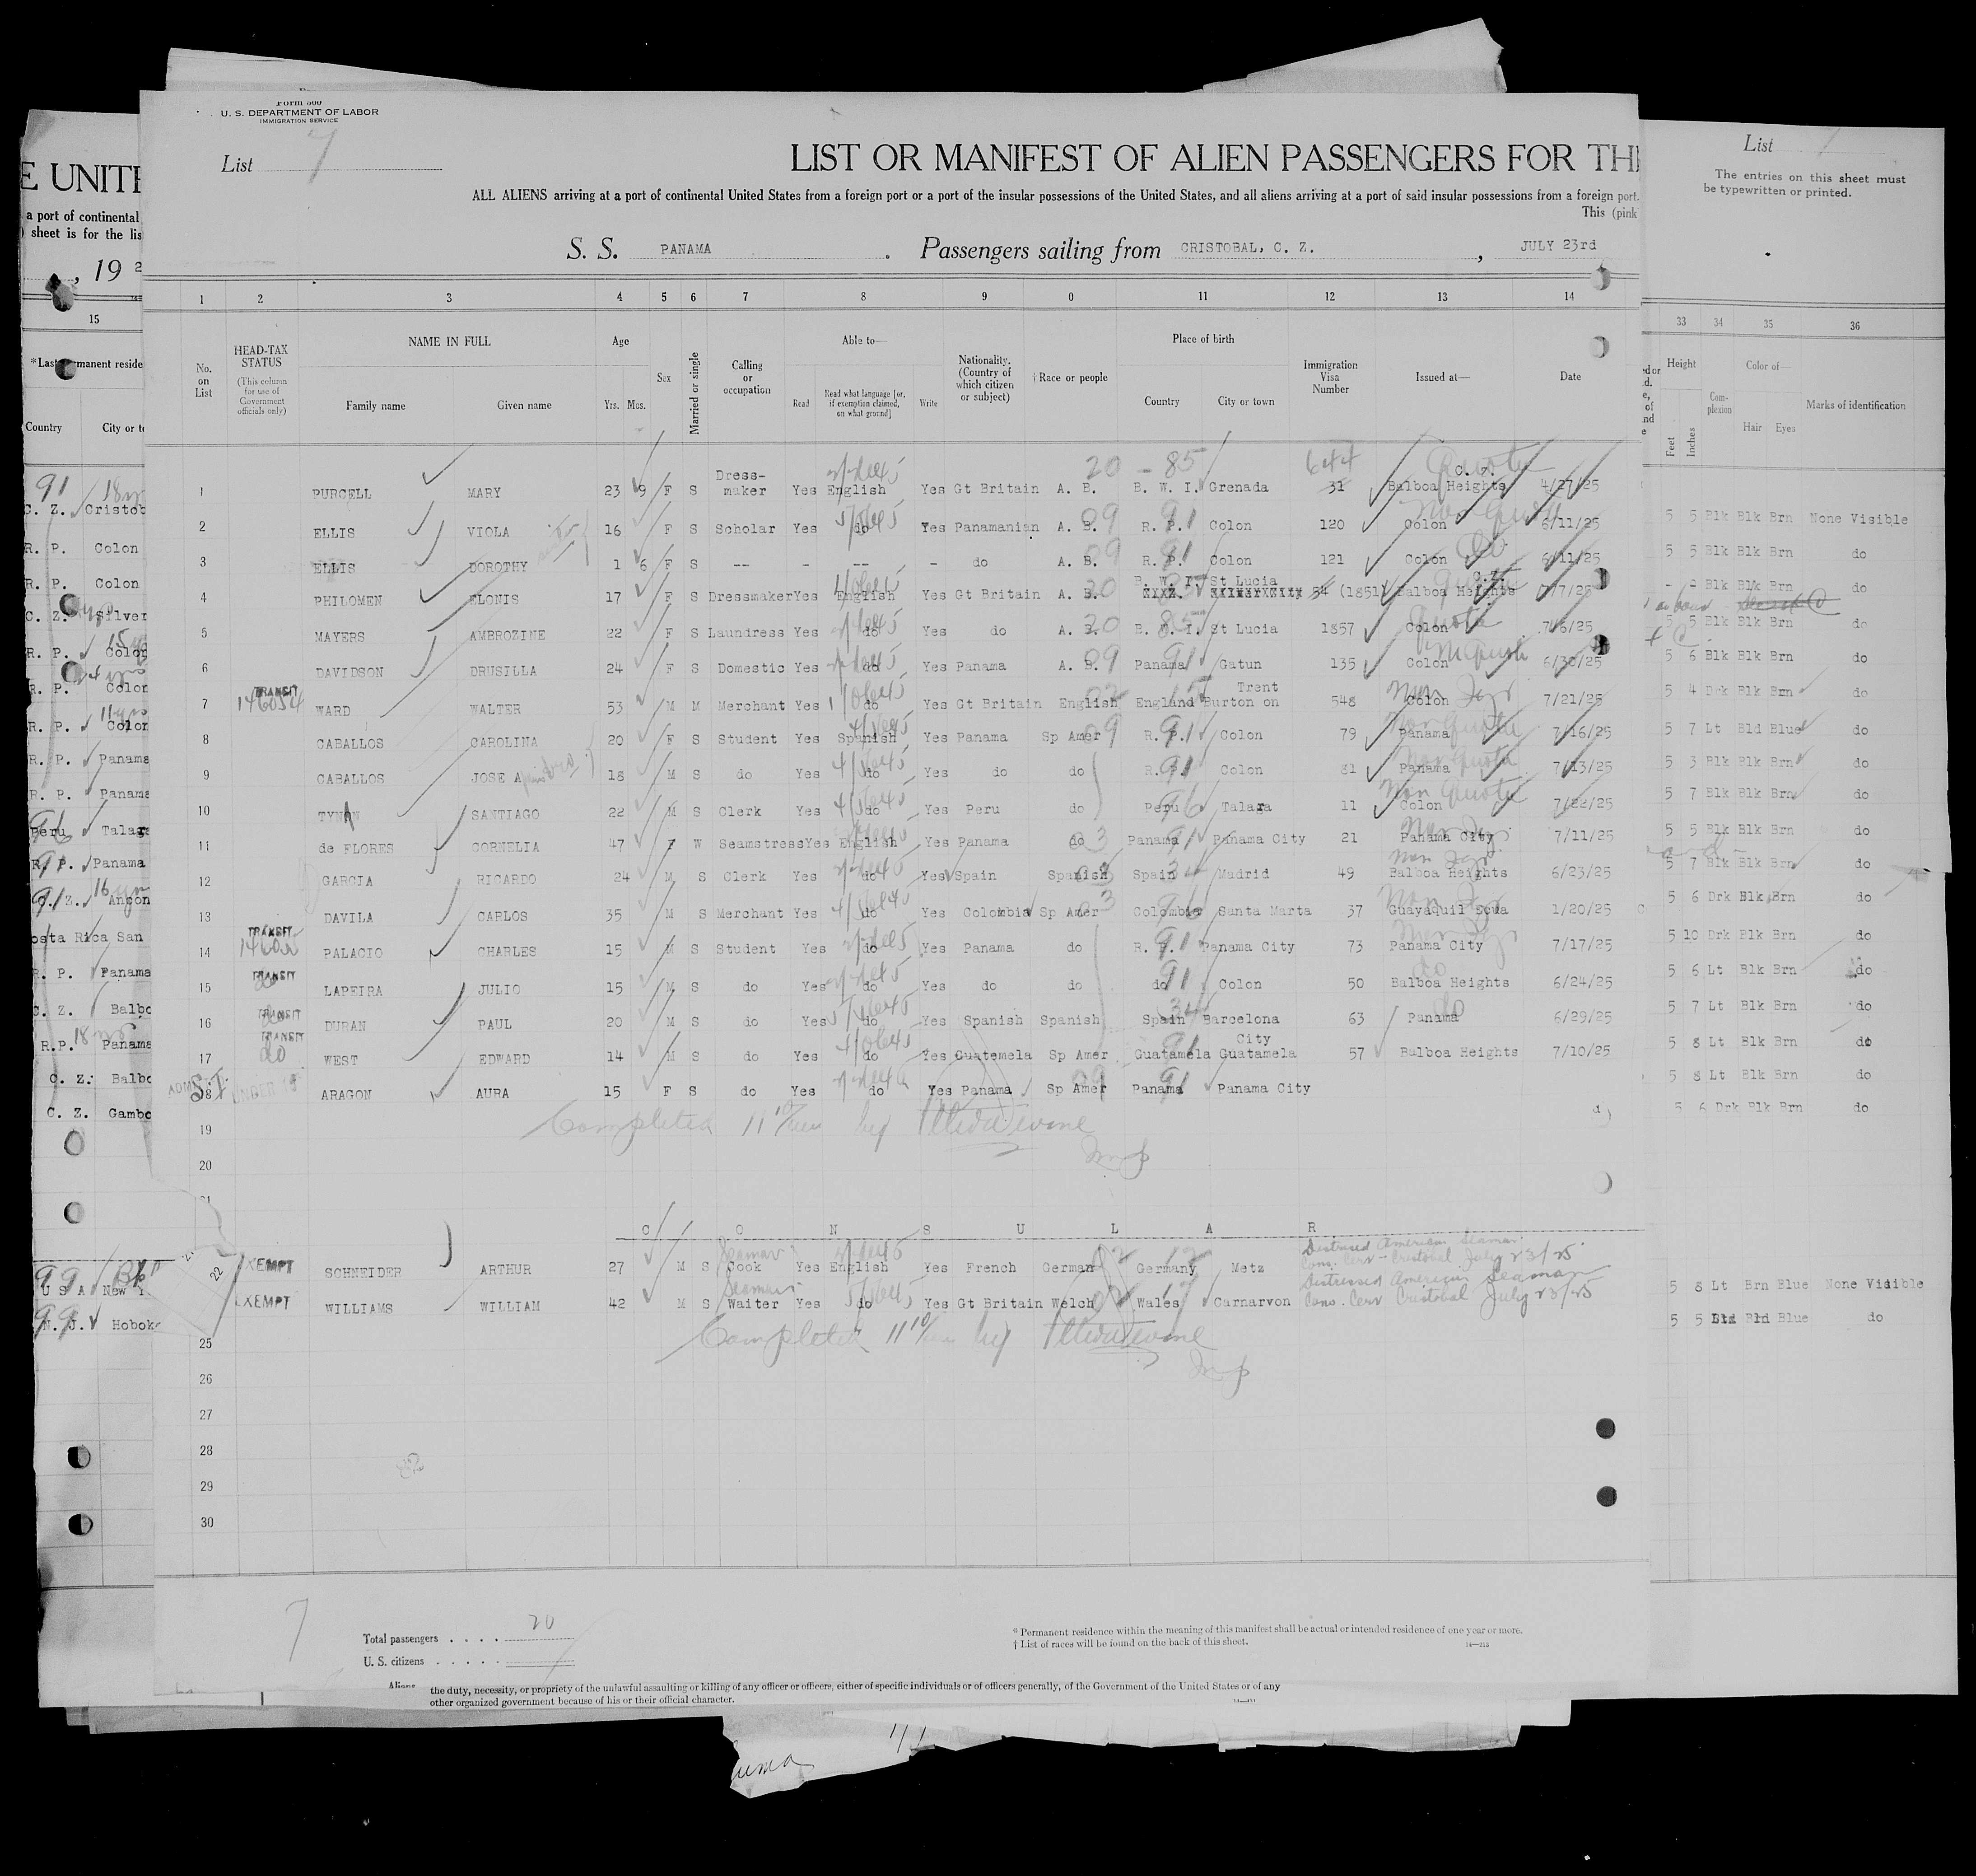 Form 500
U. S. DEPARTMENT OF LABOR
IMMIGRATION SERVICE
List 7
LIST OR MANIFEST OF ALIEN PASSENGERS FOR TH
ALL ALIENS arriving at a port of continental United States from a foreign port or a port of the insular possessions of the United States, and all aliens arriving at a port of said insular possessions from a foreign port
This (pink
S. S. PANAMA . Passengers sailing from CRISTOBAL, C. Z. , JULY 23rd
1 2 3 4 5 6 7 8 9 0 11 12 13 14
No. on List
HEAD-TAX STATUS
(This column for use of Government officials only)
NAME IN FULL
Family name Given name
Age
Yrs. Mos.
Sex
Married or single
Calling or occupation
Able to—
Read Read what language [or, if exemption claimed, on what ground] Write
Nationality. (Country of which citizen or subject)
† Race or people
Place of birth
Country City or town
Immigration Visa Number
Issued at—
Date
1 PURCELL MARY 23 9 F S Dress- maker Yes English Yes Gt Britain A. B. 20 - 85 B. W. I. Grenada 644 31 C. Z. Balboa Heights 4/27/25
2 ELLIS VIOLA 16 F S Scholar Yes do Yes Panamanian A. B. 09 91 R. P. Colon 120 Colon 6/11/25
3 ELLIS DOROTHY 1 6 F S -- - -- - do A. B. 09 91 R. P. Colon 121 Colon 6/11/25
4 PHILOMEN ELONIS 17 F S Dressmaker Yes English Yes Gt Britain A. B. 20 B. W. I. St Lucia 54 (1851) C.Z. Balboa Heights 7/7/25
5 MAYERS AMBROZINE 22 F S Laundress Yes do Yes do A. B. 20 85 B. W. I. St Lucia 1857 Colon 7/6/25
6 DAVIDSON DRUSILLA 24 F S Domestic Yes do Yes Panama A. B. 09 91 Panama Gatun 135 Colon 6/30/25
7 TRANSIT 146054 WARD WALTER 53 M M Merchant Yes do Yes Gt Britain English England Trent Burton on 548 Colon 7/21/25
8 CABALLOS CAROLINA 20 F S Student Yes Spanish Yes Panama Sp Amer 09 R. P. Colon 79 Panama 7/16/25
9 CABALLOS JOSE A 18 M S do Yes do Yes do do R. P. Colon 81 Panama 7/13/25
10 TYMAN SANTIAGO 22 M S Clerk Yes do Yes Peru do Peru 96 Talara 11 Colon 7/22/25
11 de FLORES CORNELIA 47 F W Seamstress Yes English Yes Panama do Panama 91 Panama City 21 Panama City 7/11/25
12 GARCIA RICARDO 24 M S Clerk Yes do Yes Spain Spanish Spain Madrid 49 Balboa Heights 6/23/25
13 DAVILA CARLOS 35 M S Merchant Yes do Yes Colombia Sp Amer Colombia Santa Marta 37 Guayaquil Ecua 1/20/25
14 TRANSIT PALACIO CHARLES 15 M S Student Yes do Yes Panama do R. P. Panama City 73 Panama City 7/17/25
15 TRANSIT do LAPEIRA JULIO 15 M S do Yes do Yes do do do Colon 50 Balboa Heights 6/24/25
16 TRANSIT do DURAN PAUL 20 M S do Yes do Yes Spanish Spanish Spain Barcelona 63 Panama 6/29/25
17 TRANSIT do WEST EDWARD 14 M S do Yes do Yes Guatemela Sp Amer Guatamela City Guatamela 57 Balboa Heights 7/10/25
18 ARAGON AURA 15 F S do Yes do Yes Panama Sp Amer Panama 91 Panama City
19 Completed 11 10 by
20
21
C O N S U L A R
22 EXEMPT SCHNEIDER ARTHUR 27 M S Seaman Cook Yes English Yes French German Germany Metz Distressed American Seaman Cons. Cert - Cristobal July 23/25
EXEMPT WILLIAMS WILLIAM 42 M S Seaman Waiter Yes do Yes Gt Britain Welch Wales Carnarvon Distressed American Seaman Cons. Cert Cristobal July 23/25
25 Completed 11 10 by
26
27
28
29
30
7
Total passengers . . . . 20
U. S. citizens . . . . .
Aliens
* Permanent residence within the meaning of this manifest shall be actual or intended residence of one year or more.
† List of races will be found on the back of this sheet.
the duty, necessity, or propriety of the unlawful assaulting or killing of any officer or officers, either of specific individuals or of officers generally, of the Government of the United States or of any
other organized government because of his or their official character.
E UNIT
a port of continental
) sheet is for the lis
, 19 2
15
*Last permanent reside
Country City or t
91 18 yrs
C. Z. Cristob
R. P. Colon
R. P. Colon
C. Z. Silver
R. P. Colon
R. P. Colon
R. P. Colon
R. P. Panama
R. P. Panama
Peru Talara
R. P. Panama
C. Z. Ancon
osta Rica San
R. P. Panama
C. Z. Balbo
R.P. Panama
C. Z. Balbo
C. Z. Gambo
U S A New Y
N. J. Hobok
List 1
The entries on this sheet must
be typewritten or printed.
33 34 35 36
Height
Feet Inches
Com- plexion
Color of—
Hair Eyes
Marks of identification
5 5 Blk Blk Brn None Visible
5 5 Blk Blk Brn do
- 2 Blk Blk Brn do
5 5 Blk Blk Brn do
5 6 Blk Blk Brn do
5 4 Drk Blk Brn do
5 7 Lt Bld Blue do
5 3 Blk Blk Brn do
5 7 Blk Blk Brn do
5 5 Blk Blk Brn do
5 7 Blk Blk Brn do
5 6 Drk Blk Brn do
5 10 Drk Blk Brn do
5 6 Lt Blk Brn do
5 7 Lt Blk Brn do
5 8 Lt Blk Brn do
5 8 Lt Blk Brn do
5 6 Drk Blk Brn do
5 8 Lt Brn Blue None Visible
5 5 Bld Blue do